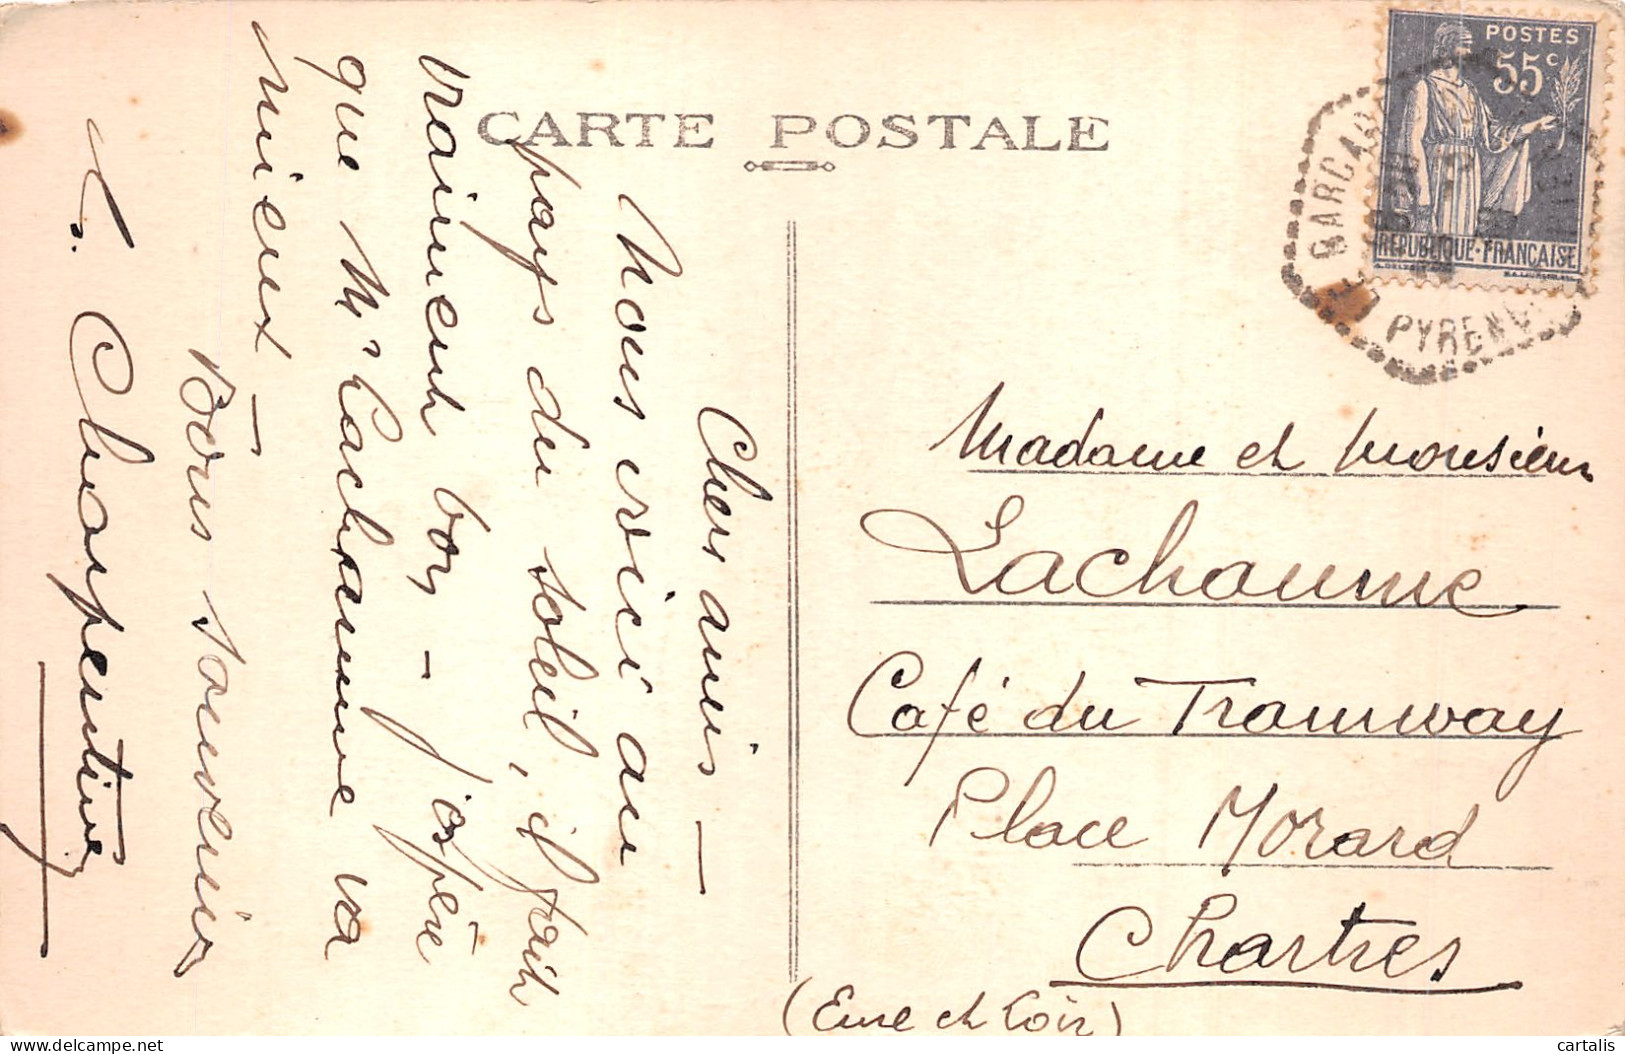 CARTE POSTALE
Chers amis –
Nous voici au
pays du soleil, il fait
vraiment bon – j'espère
que Mr Lachaume va
mieux –
Bons souvenirs
L. Charpentier
POSTES
55c
REPUBLIQUE-FRANCAISE
PYRENEES
Madame et Monsieur
Lachaume
Café du Tramway
Place Morard
Chartres
(Eure et Loir)
cartalis